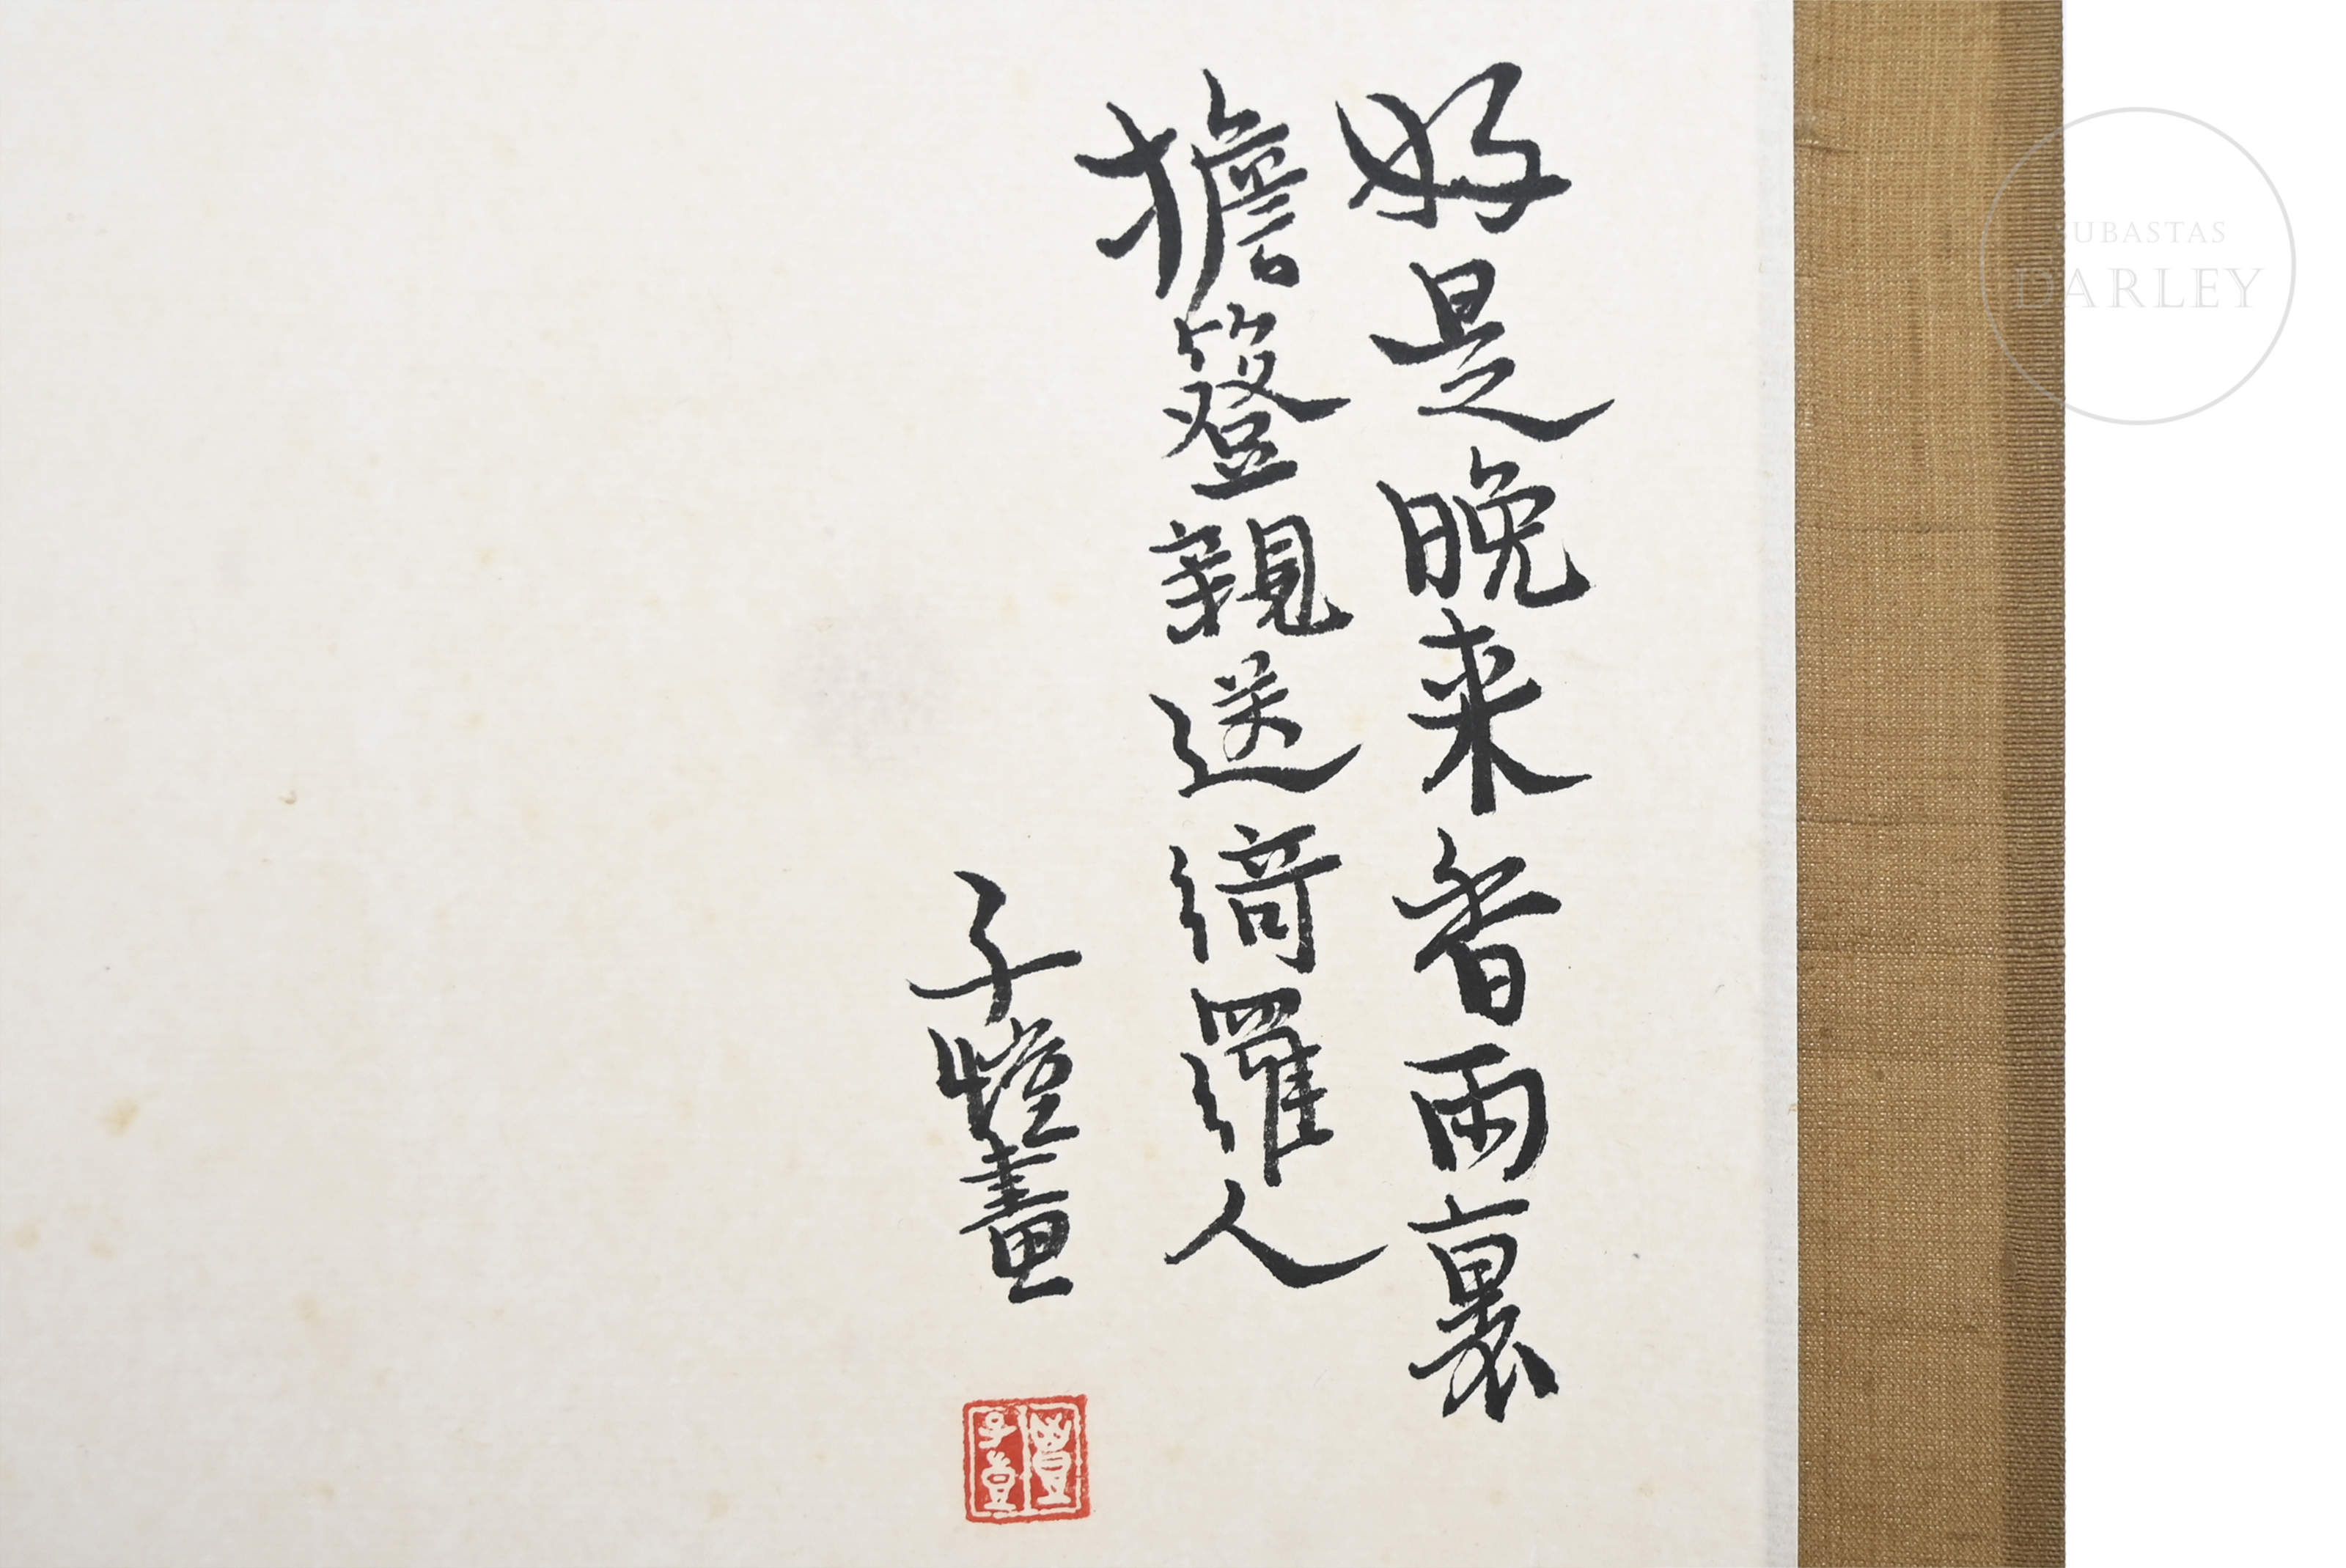 好是晚来香雨裏
擔簦親送綺羅人
子愷畫
SUBASTAS
DARLEY